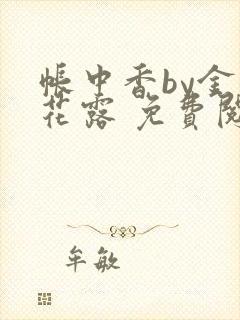 帳中香by金
花露 免費閱
牟敏